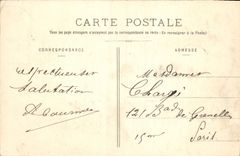 CARTE POSTALE
Tous les pays étrangers n'acceptent pas la correspondance au recto. (Se renseigner à la Poste)
CORRESPONDANCE
ADRESSE
respectueuses
salutations
Mesdames
121 Bd de Grenelle
15me
Paris